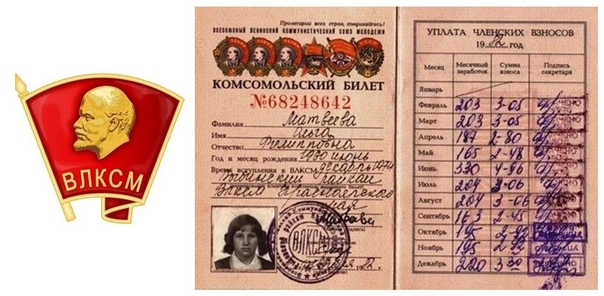 ВЛКСМ
Пролетарии всех стран, соединяйтесь!
ВСЕСОЮЗНЫЙ ЛЕНИНСКИЙ КОММУНИСТИЧЕСКИЙ СОЮЗ МОЛОДЕЖИ
КОМСОМОЛЬСКИЙ БИЛЕТ
№68248642
Фамилия Матвеева
Имя Ольга
Отчество Филипповна
Год и месяц рождения 1960 июнь
Время вступления в ВЛКСМ
ВЛКСМ
УПЛАТА ЧЛЕНСКИХ ВЗНОСОВ
19 год
Месяц Месячный заработок Сумма взноса Подпись секретаря
Январь
Февраль 203 3-05
Март 203 3-05
Апрель 187 2-80
Май 165 2-48
Июнь 330 4-96
Июль 204 3-06
Август 204 3-06
Сентябрь 163 2-45
Октябрь 195
Ноябрь 195
Декабрь 220 3-30